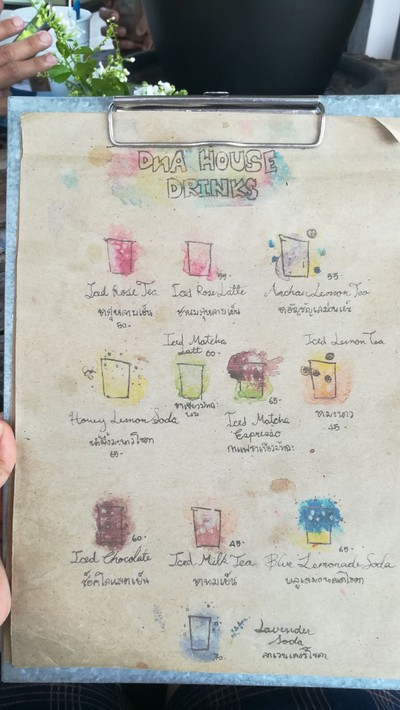 DNA HOUSE
DRINKS
Iced Rose Tea
ชากุหลาบเย็น
50.-
Iced Rose Latte
55.-
ชานมกุหลาบเย็น
Anchan Lemon Tea
55.-
ชาอัญชันมะนาวเย็น
Honey Lemon Soda
น้ำผึ้งมะนาวโซดา
Iced Matcha
Latt 60.-
ชาเขียวมัทฉะ
นม
65.-
Iced Matcha
Espresso
กาแฟชาเขียวมัทฉะ
Iced Lemon Tea
ชามะนาว
45.-
60.-
Iced Chocolate
ช็อคโกแลตเย็น
45.-
Iced Milk Tea
ชานมเย็น
65.-
Blue Lemonade Soda
บลูเลมอนเนดโซดา
Lavender
Soda
ลาเวนเดอร์โซดา